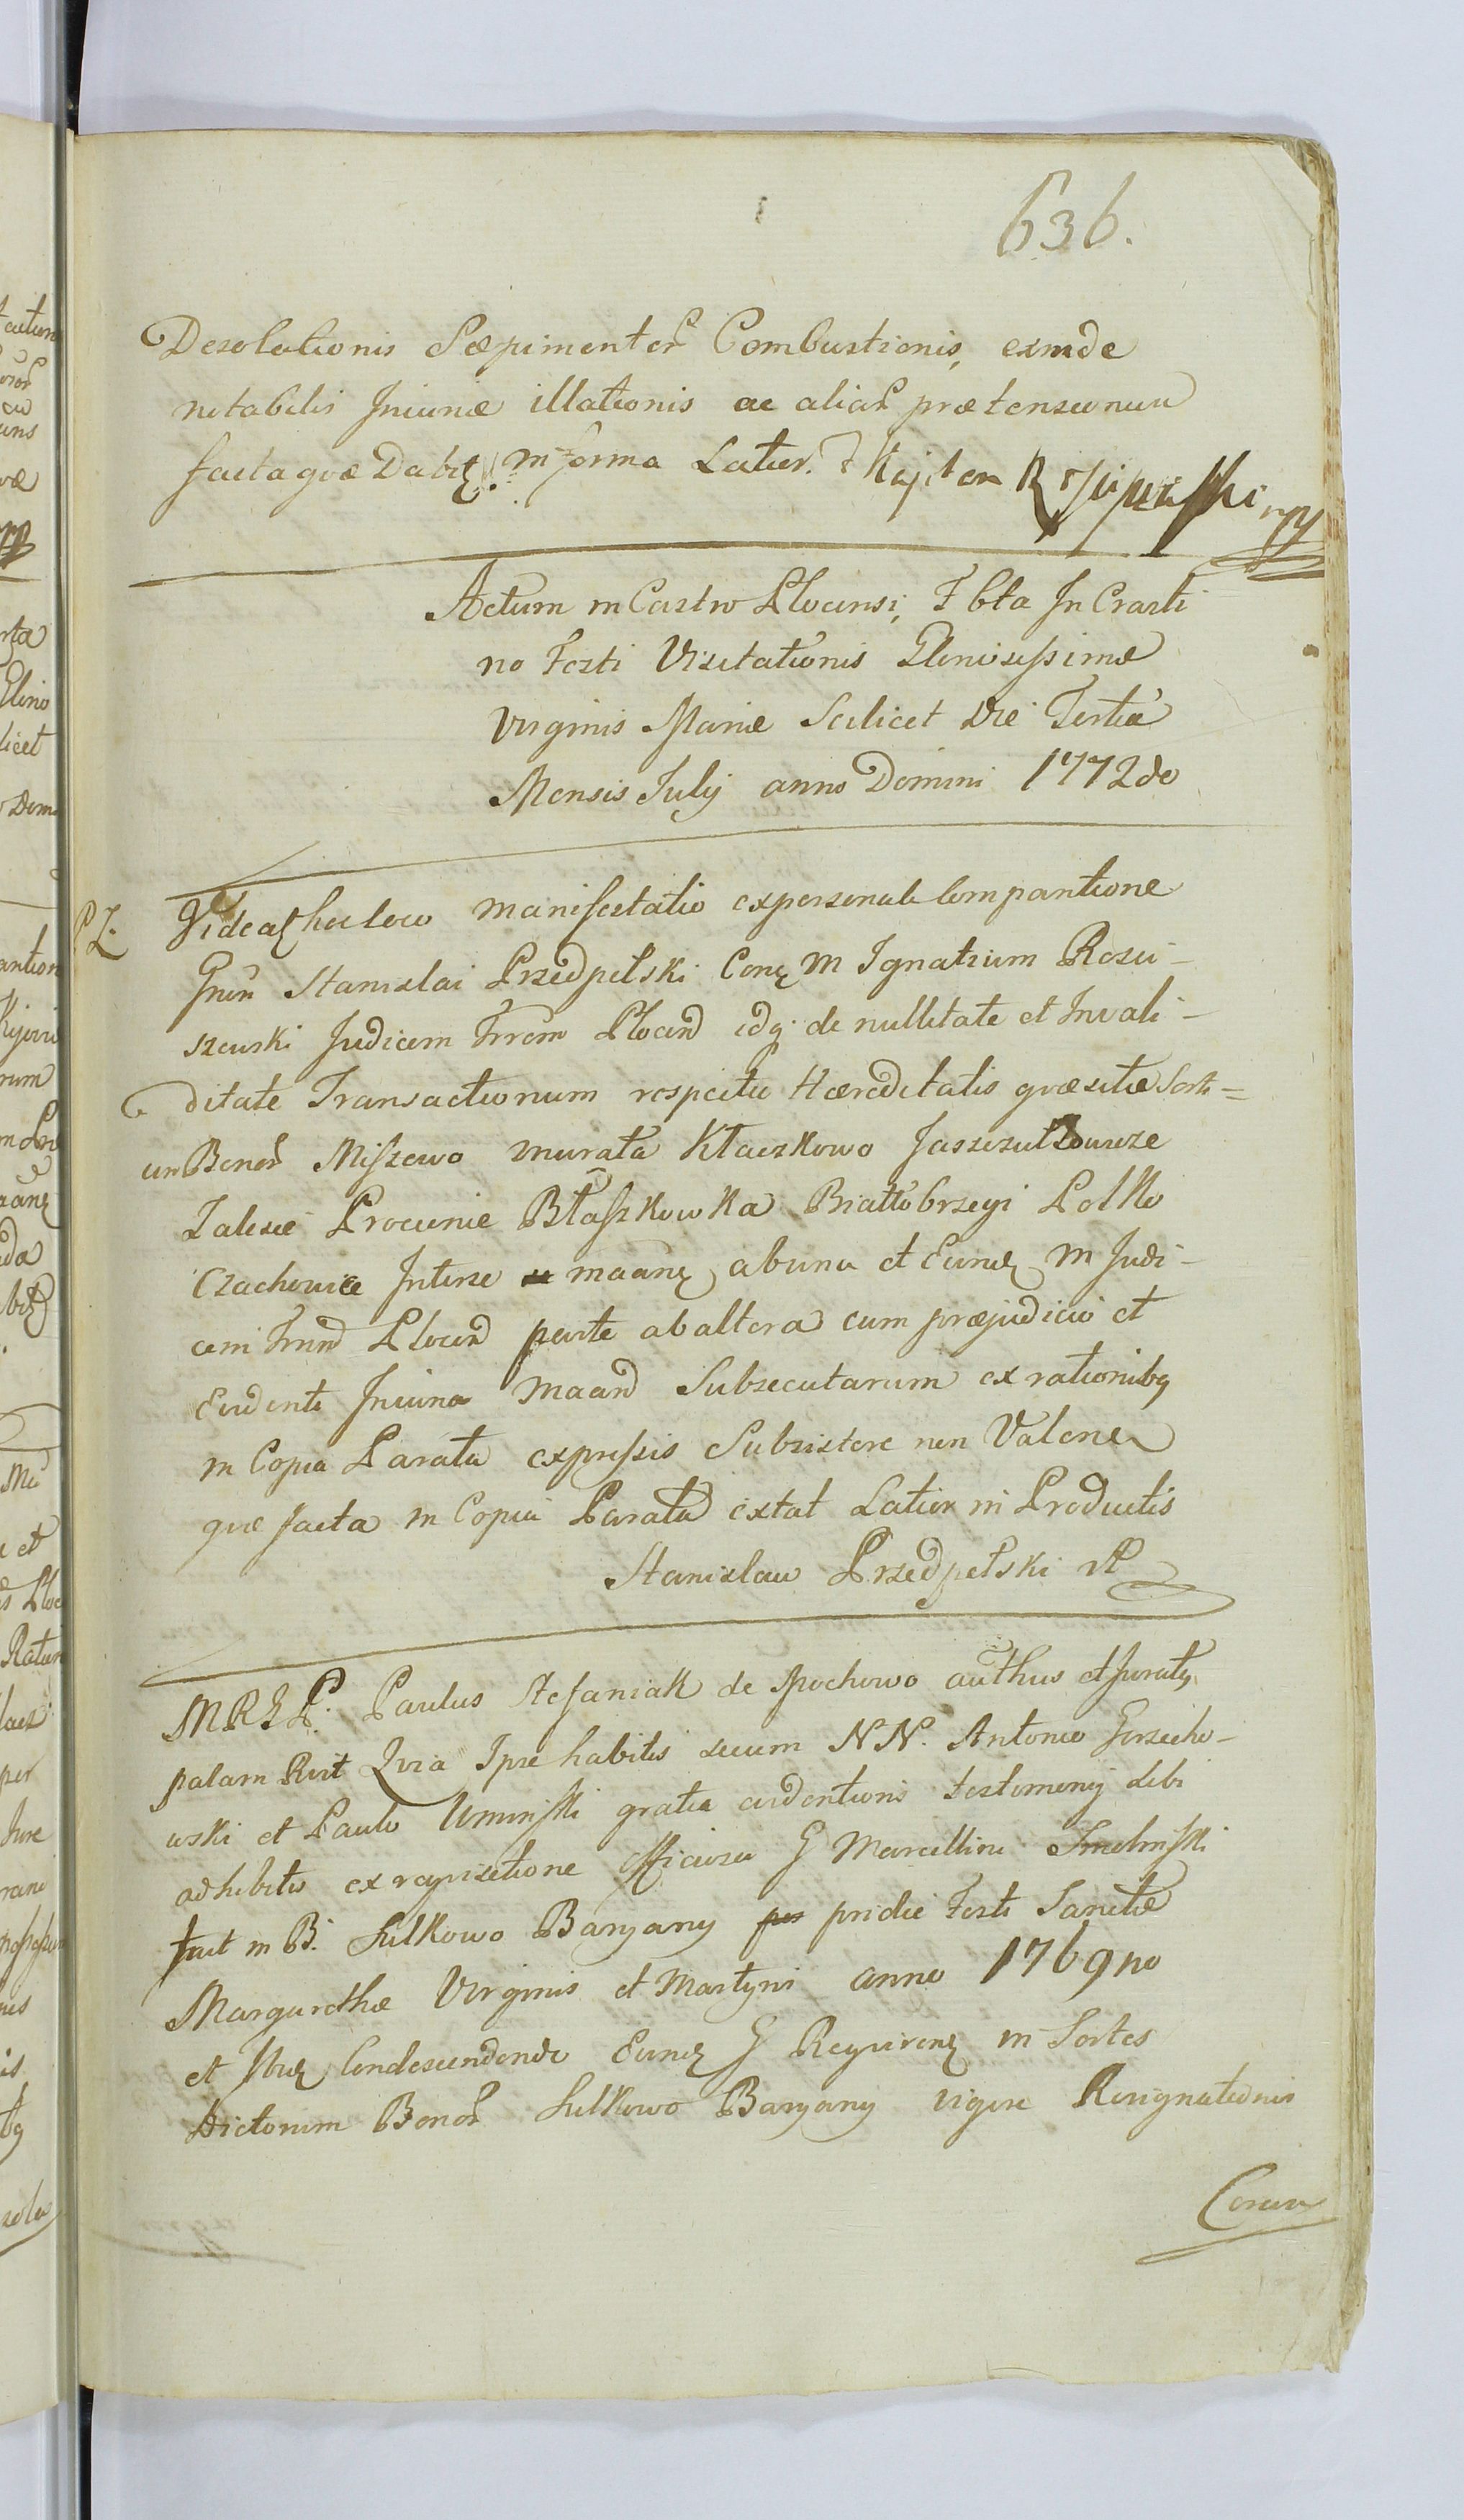 636.
Desolationis Sæpimentor Combustionis, exinde
notabilis Iniuriæ illationis ac aliar prætensionum
facta quæ Dabit in forma Latior. Kajetan
Actum in Castro Plocensi, Fbta In Crasti
no Festi Visitationis Gloriosissimæ
Virginis Mariæ Scilicet Die Tertia
Mensis Julij anno Domini 1772do
Videat hoc loco Manifestatio ex personali Compantione
Gnri Stanislai Przedpełski Con M Ignatium Rosci-
szewski Judicem Trrem Plocen idq de nullitate et Invali-
ditate Transactionum respectu Hæreditatis quæsitæ Sorti-
um Bonor Miszewo murata Kłaczkowo
Zalesie Procienie Błaszkowka Białłobrzegi Polko
Czachowice Inter se maane ab una et Eund M Judi-
cem Trrm Plocen parte ab altera cum præjudicio et
Evidenti Iniuria Maand Subsecutarum ex rationibq
in Copia Parata expressis Subsistere non Valene
quæ facta in Copia Parata extat Latior in Productis
Stanislaw Przedpełski
M R G P. Paulus Stefaniak de Mochowo authus et Juratq
palam Rvit Qvia Ipse habitis secum N N. Antonio Gorzecho-
wski et Paulo Uminski gratia evidentioris testimonij sibi
adhibitis ex reqvisitione officiosa G Marcellini
fuit in B. Sulkowo Baryany pridie Festi Sanctæ
Margarethæ Virginis et Martyris anno 1769no
et Ibid Condescendendo Eund G Reqvirend in Sortes
Dictorum Bonor Sulkowo Baryany vigore Resignationis
Coram